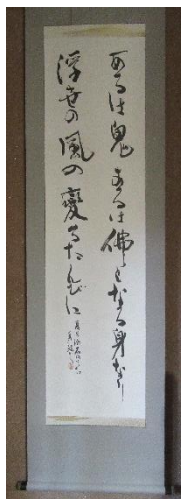 あるは鬼あるは佛となる身なり
浮世の風の變るたんびに